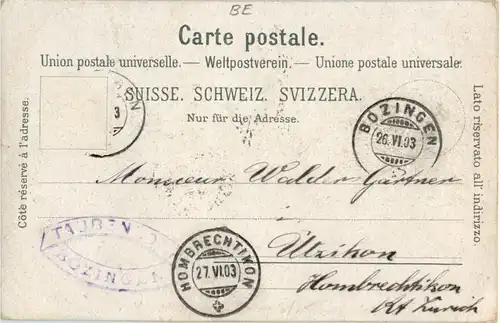 BE
Carte postale.
Union postale universelle. — Weltpostverein. — Unione postale universale.
SUISSE. SCHWEIZ. SVIZZERA.
Nur für die Adresse.
Côte réservé à l'adresse.
Lato riservato all' indirizzo.
BOZINGEN
26.VI.03
Monsieur Walder Gärtner
in
TAUBEN
BOZINGEN
HOMBRECHTIKON
27.VI.03
Ützikon
Hombrechtikon
Kt Zürich